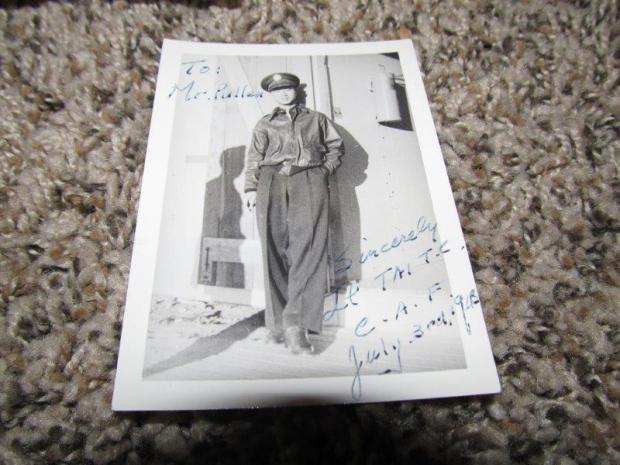 To:
Mr. Pullen
Sincerely
Lt TAI T.C.
C.A.F.
July. 3rd,